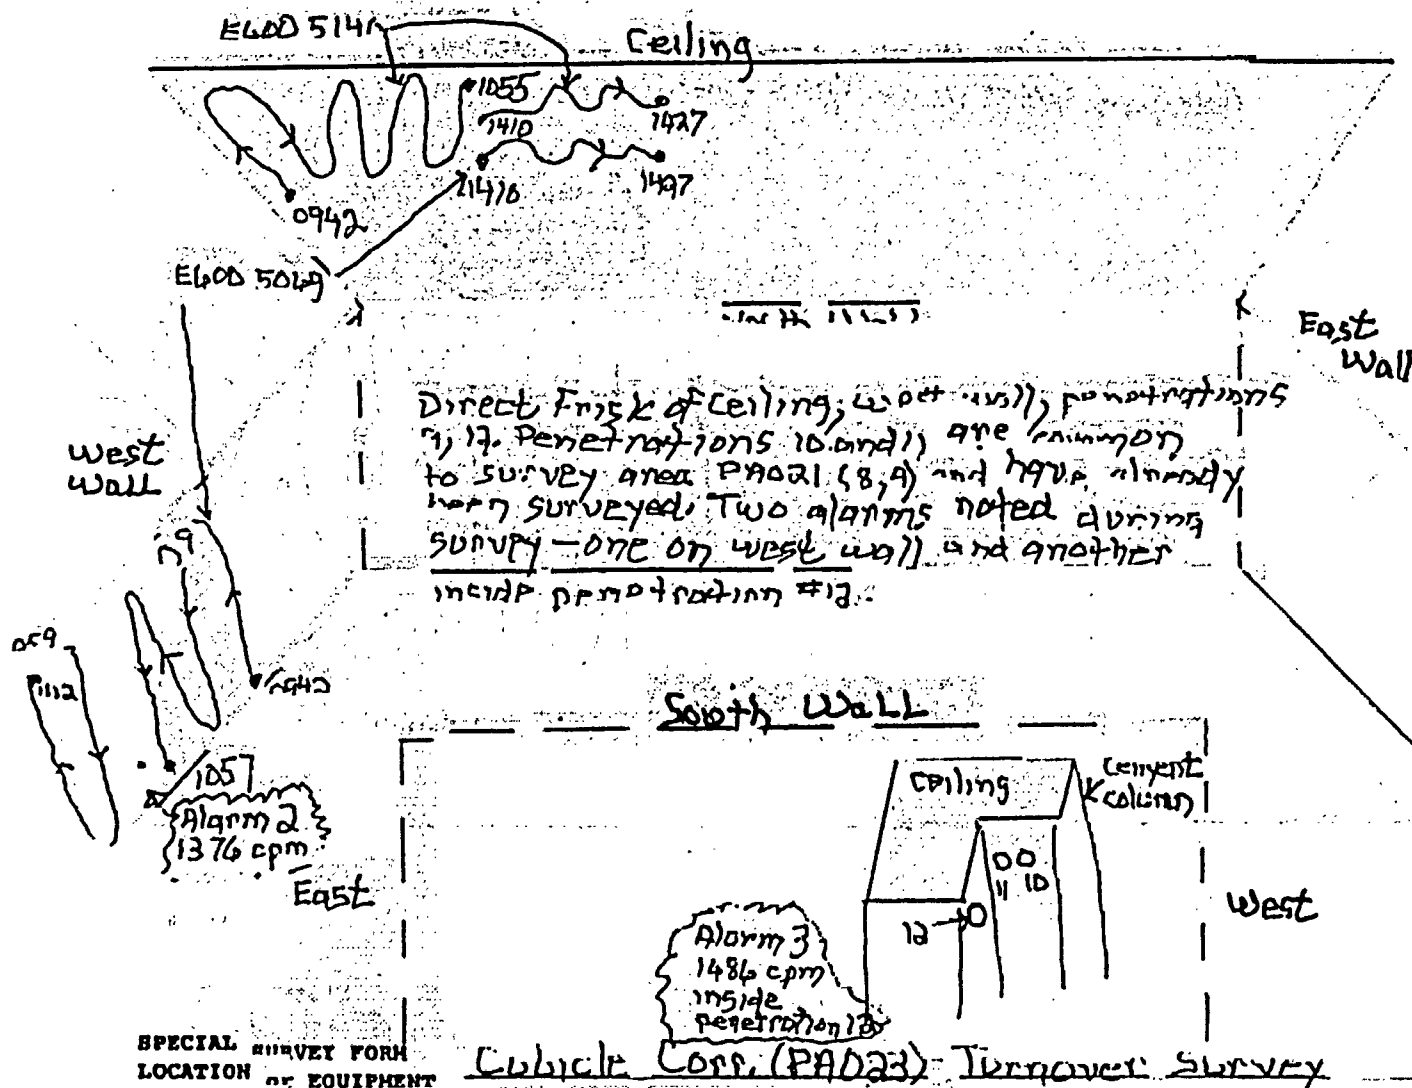 E600 5141
Ceiling
1055
1410
1427
1410
1497
0942
E600 5069
East
Wall
West
Wall
Direct Frisk of Ceiling, west wall, penetrations
12. Penetrations 10 and 11 are common
to survey area PA021 (8,9) and have already
been surveyed. Two alarms noted during
survey - one on west wall and another
inside penetration #12.
0942
1112
1057
Alarm 2
1376 cpm
East
South Wall
Ceiling
Cement
column
11 10
12
West
Alarm 3
1486 cpm
inside
penetration 12
SPECIAL SURVEY FORM
LOCATION OF EQUIPMENT
Cubicle Corr. (PA023) Turnover Survey